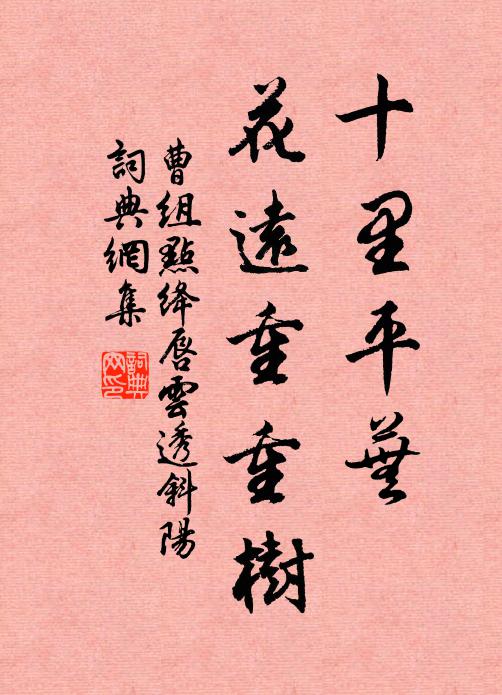 十里平蕪
花遠重重樹
曹組點絳唇雲透斜陽
詞典網集
詞典
网印